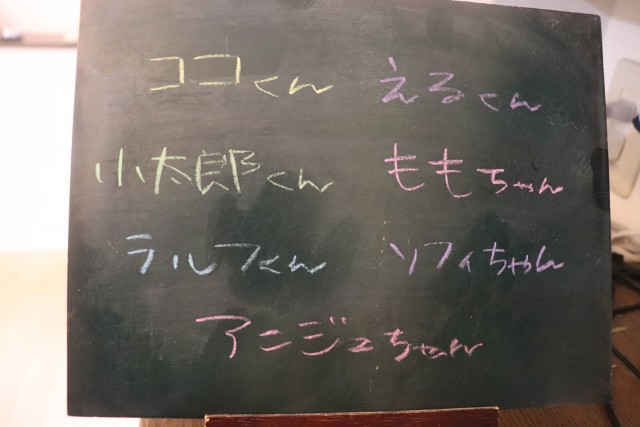 ココくん えるくん
小太郎くん ももちゃん
ラルフくん ソフィちゃん
アンジュちゃん